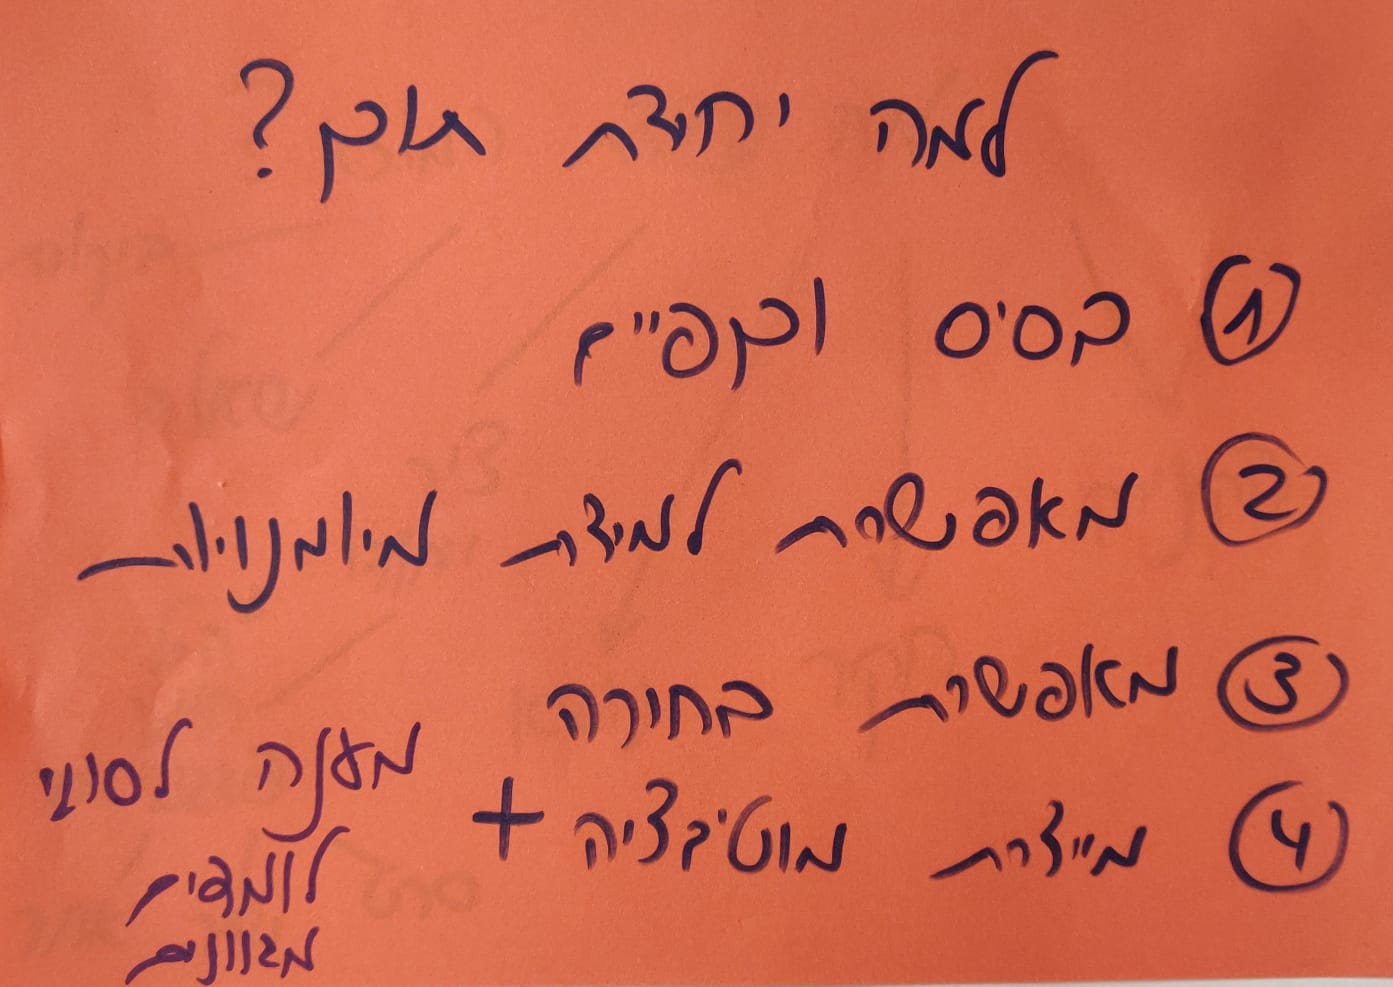 למה יחידת תוכן?
1 בסיס
2 מאפשרת למידת מיומנויות
3 מאפשרת בחירה
4 מייצרת מוטיבציה +
מענה לסוגי
לומדים
מגוונים